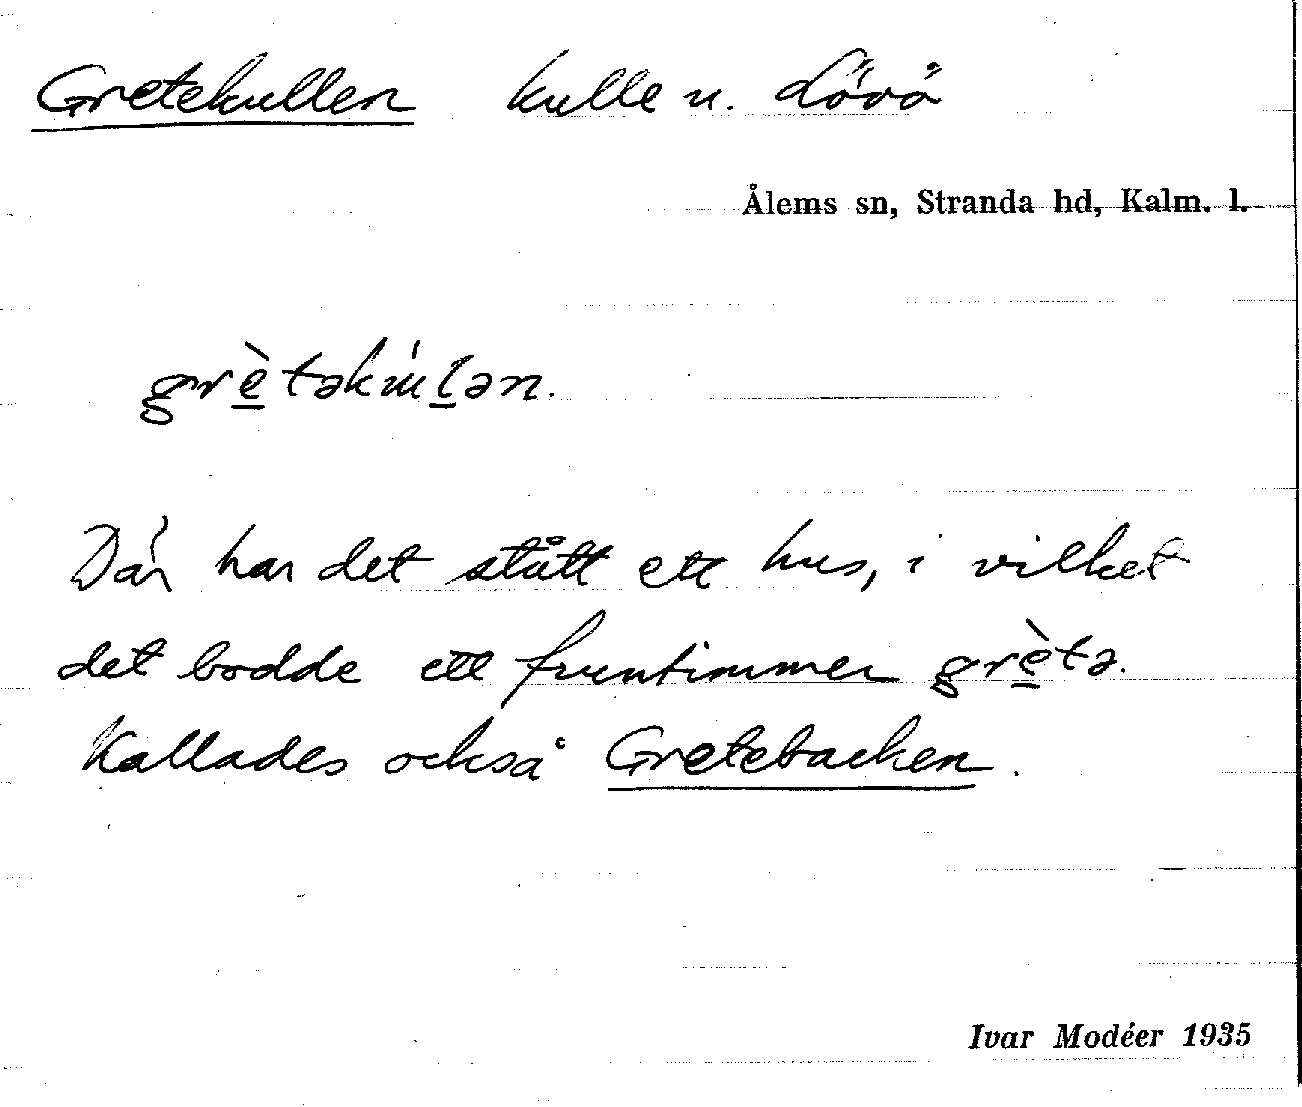 Gretekullen kulle u. Lövö
Ålems sn, Stranda hd, Kalm. l.
grètəkúlən.
Där har det stått ett hus, i vilket
det bodde ett fruntimmer grètə.
Kallades också Gretebacken.
Ivar Modéer 1935